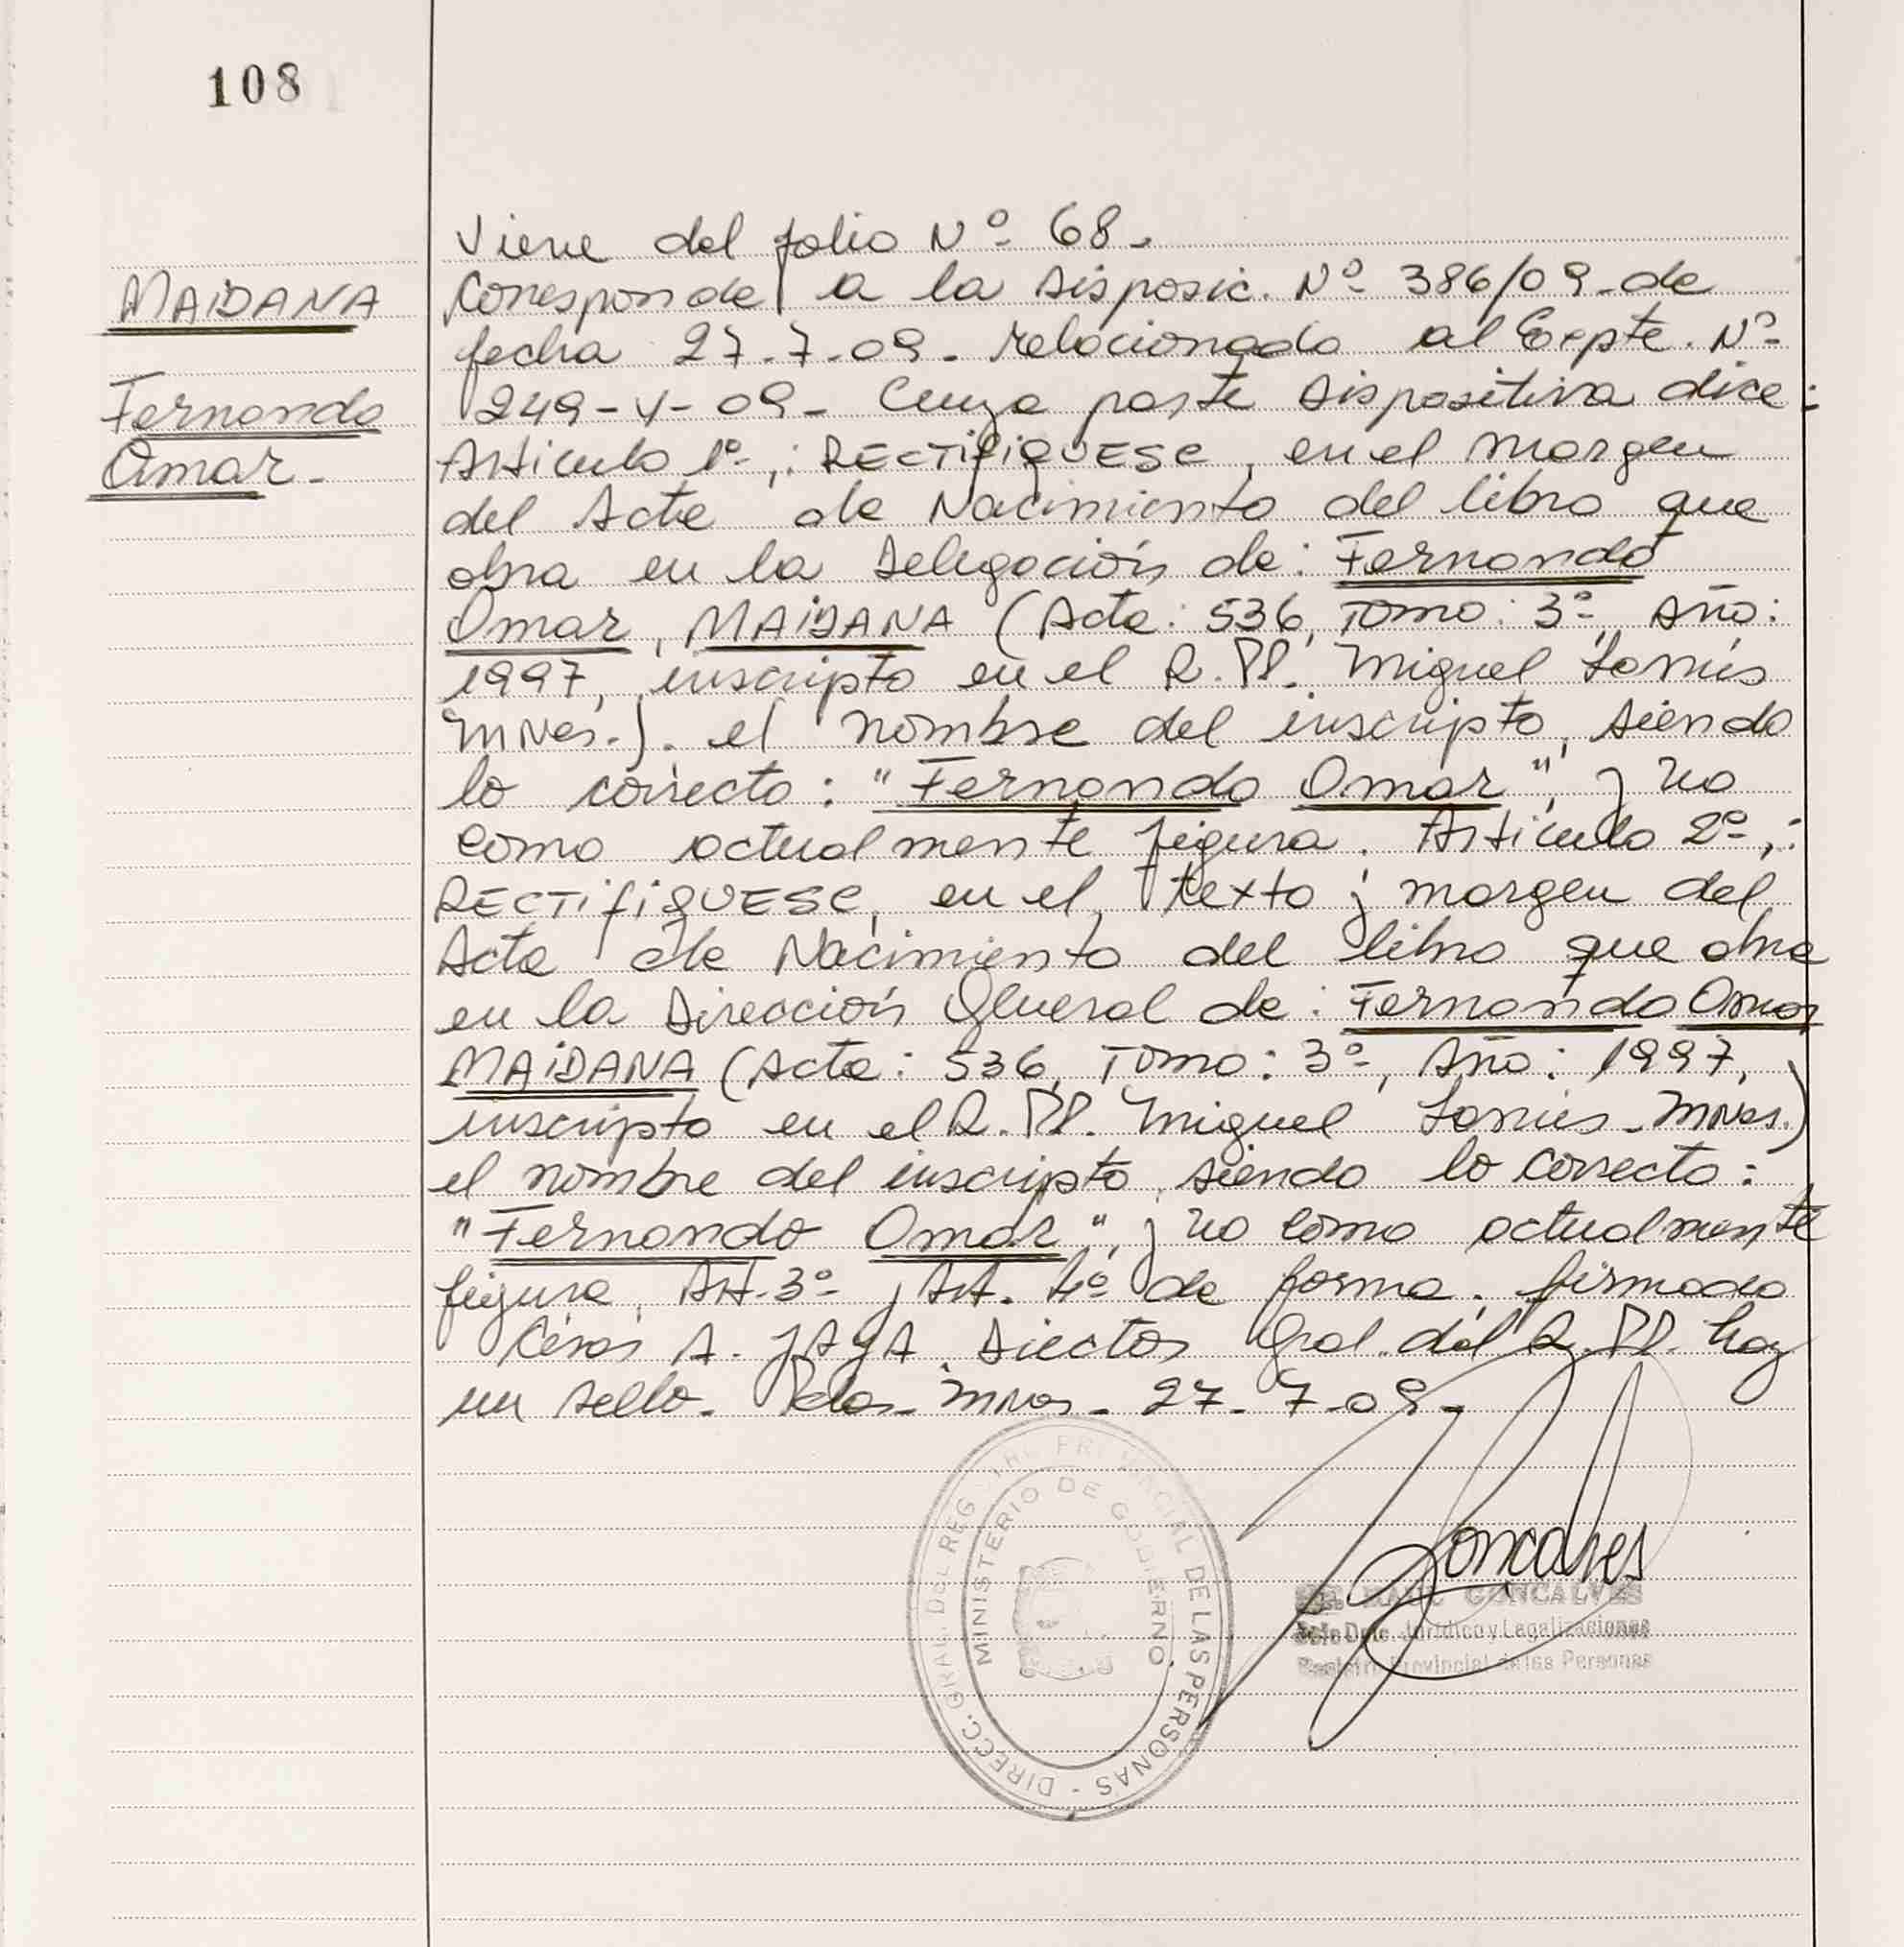 108
MAIDANA
Fernando
Omar.
Viene del folio Nº 68.
Corresponde a la Disposic. Nº 386/09 de
fecha 27.7.09. relacionado al Expte. Nº
249-V-09. Cuya parte dispositiva dice:
Artículo 1º,: RECTIFIQUESE, en el margen
del Acta de Nacimiento del libro que
obra en la Delegación de: Fernando
Omar, MAIDANA (Acta: 536, Tomo: 3º, Año:
1997, inscripto en el R.PP. Miguel Lanús
Mnes.). el nombre del inscripto, siendo
lo correcto: "Fernando Omar", y no
como actualmente figura. Artículo 2º,:
RECTIFIQUESE, en el, texto y margen del
Acta de Nacimiento del libro que obra
en la Dirección General de: Fernando Omar
MAIDANA (Acta: 536, Tomo: 3º, Año: 1997,
inscripto en el R.PP. Miguel Lanús-Mnes.)
el nombre del inscripto, siendo lo correcto:
"Fernando Omar", y no como actualmente
figura. Art.3º y Art. 4º de forma. firmado
César A. JAJA. Director Gral. del R.PP. hay
un sello. Pdas-Mnes- 27-7-09-
DIREC. GRAL. DEL REGISTRO PROVINCIAL DE LAS PERSONAS -
MINISTERIO DE GOBIERNO
Goncalves
RAUL GONCALVES
Jefe Dpto. Jurídico y Legalizaciones
Registro Provincial de las Personas